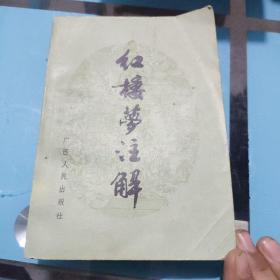 红楼梦注解
广西人民出版社